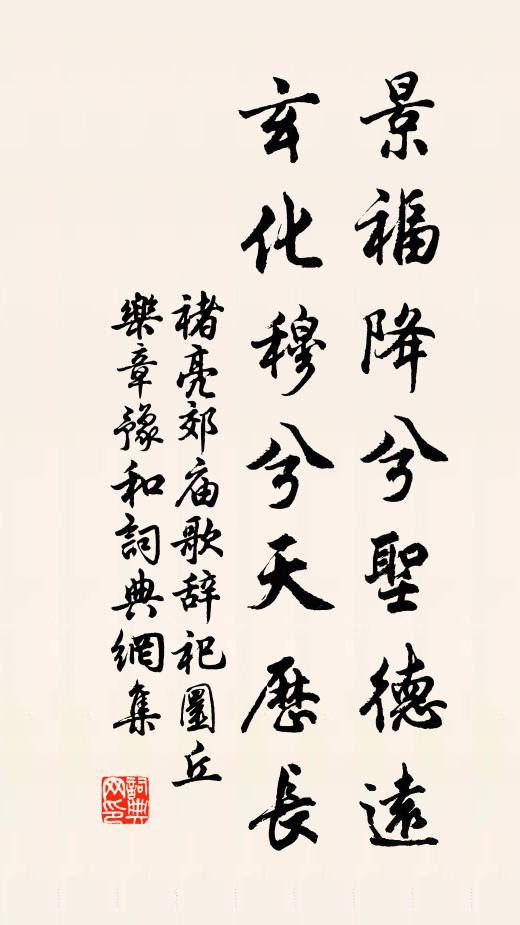 景福降兮聖德遠
玄化穆兮天歷長
褚亮郊庙歌辞祀圜丘
樂章豫和詞典網集
詞典网印